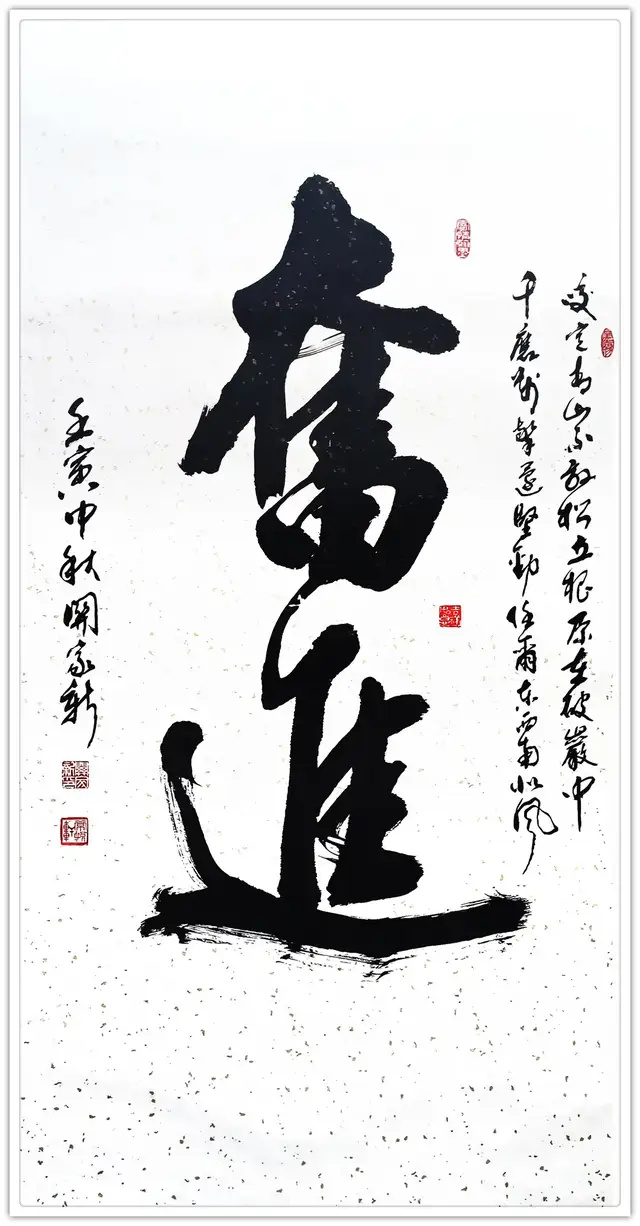 咬定青山不放松立根原在破巖中
千磨萬擊還堅勁任爾东西南北風
奮進
壬寅中秋關家新